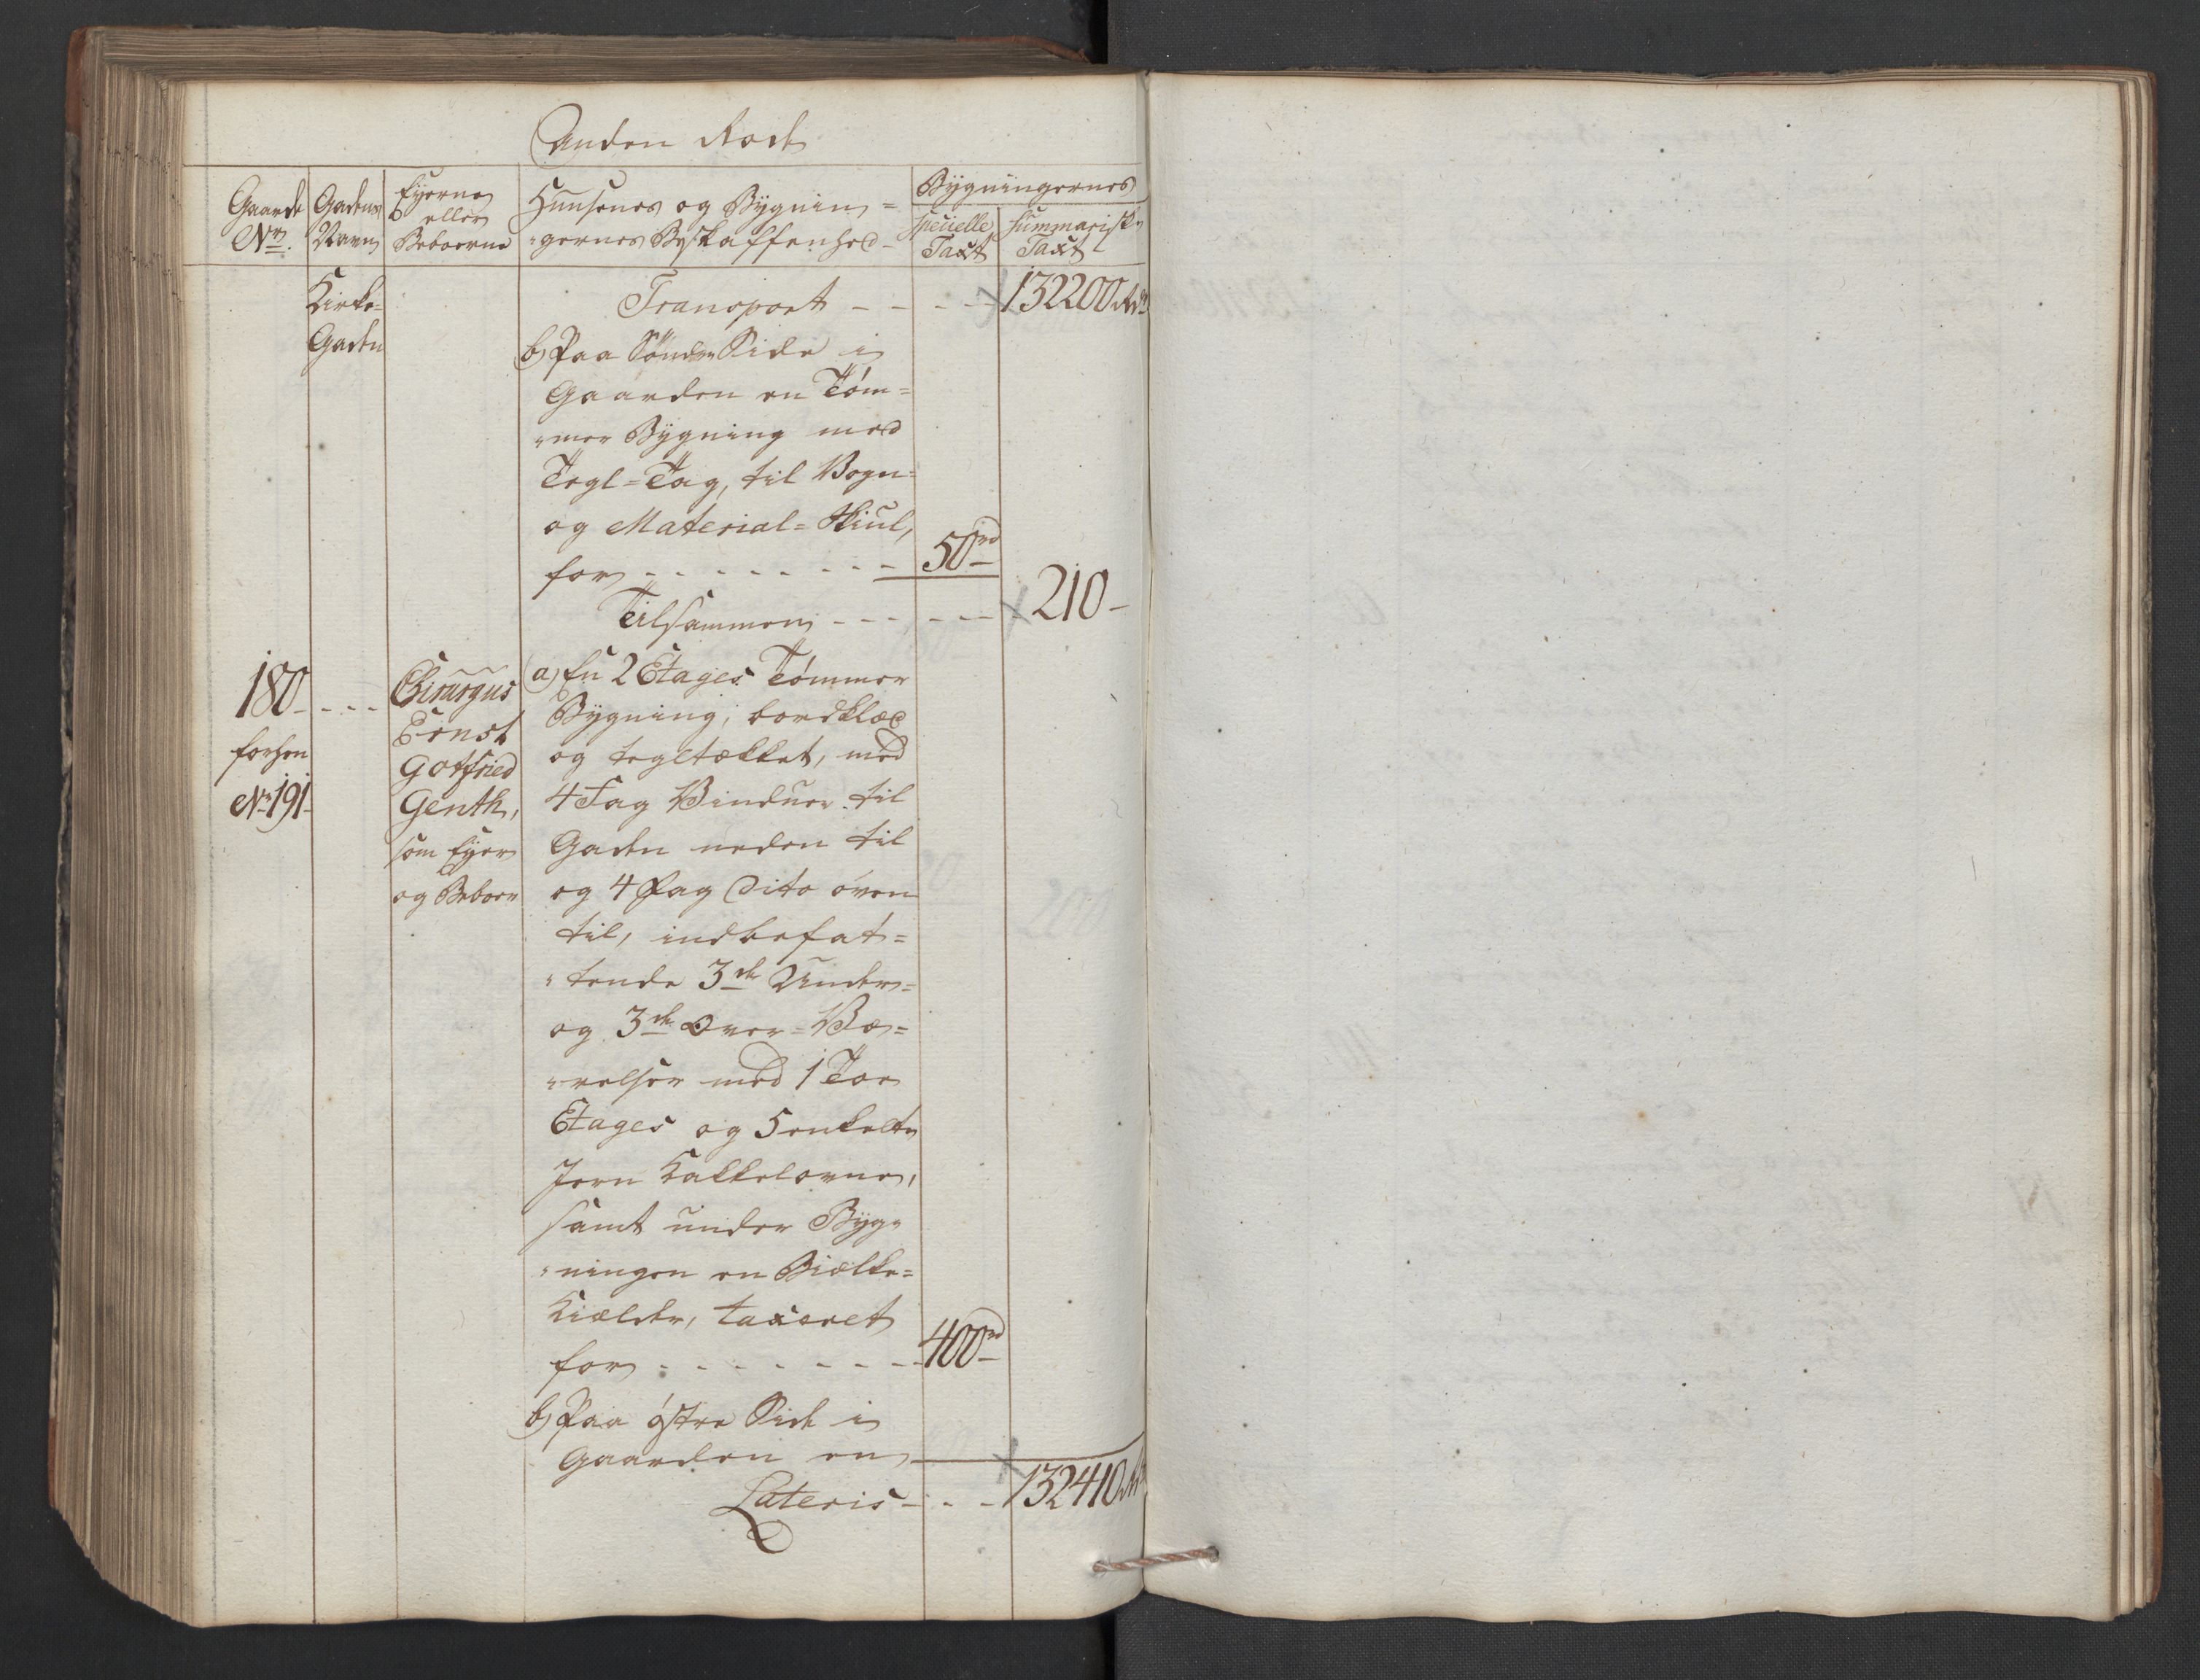 Anden Rode
Gaarde Nr.
Gadens Navn
Eyerne eller Beboerne
Huusenes og Bygnin=
=gernes Beskaffenhed
Bygningernes
specielle Taxt
summariske Taxt
Kirke=
Gaden
Transport - - - - 132200 Rdr
b) Paa Søndre Side i
Gaarden en Tøm=
=mer Bygning med
Tegl=Tag, til Vogn=
og Material=Skiul,
for - - - - - - - - 50 rd
Tilsammen - - - - - - 210 -
180 - - - -
forhen
No 191
Chirurgus
Ernst
Gotfried
Genth,
som Eyer
og Beboer
a) En 2 Etages Tømmer
Bygning, bordklæd
og tegltækket, med
4 Fag Vinduer til
Gaden neden til
og 4 Fag Dito oven
til, indbefat=
=tende 3de Under=
og 3de Over=Væ=
=relser med 1 Toe
Etages og 5 enkelte
Jern Kakkelovne,
samt under Byg=
=ningen en Biælke=
Kielder, taxeret
for - - - - - - - - 400 rd
b) Paa østre Side i
Gaarden en
Lateris - - - 132410 Rdr